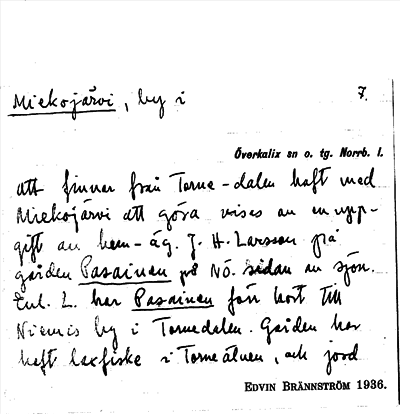 Miekojärvi, by i 7.
Överkalix sn o. tg. Norrb. l.
att finnar från Torne-dalen haft med
Miekojärvi att göra vises av en upp-
gift av hem-äg. J. H. Larsson på
gården Pasainen på NÖ. sidan av sjön.
Enl. L. har Pasainen förr hort till
Niemis by i Tornedalen. Gården har
haft laxfiske i Torneälven, och jord
EDVIN BRÄNNSTRÖM 1936.